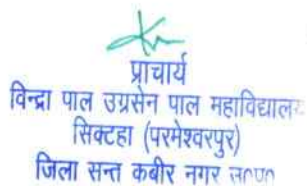 प्राचार्य
विन्द्रा पाल उग्रसेन पाल महाविद्यालय
सिक्टहा (परमेश्वरपुर)
जिला सन्त कबीर नगर उ०प्र०